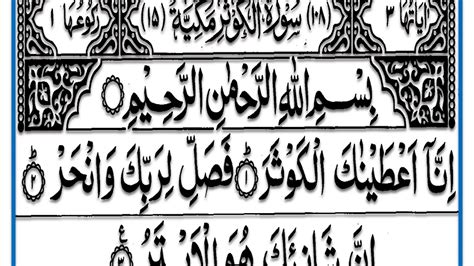 اٰيَاتُهَا ٣ (١٠٨) سُوْرَةُ الْكَوْثَرِ مَكِّيَّةٌ (١٥) رُكُوْعُهَا ١
بِسْمِ اللّٰهِ الرَّحْمٰنِ الرَّحِيْمِ
اِنَّاۤ اَعْطَيْنٰكَ الْكَوْثَرَ ؕ﴿١﴾ فَصَلِّ لِرَبِّكَ وَانْحَرْ ؕ﴿٢﴾
اِنَّ شَانِئَكَ هُوَ الْاَبْتَرُ ﴿٣﴾